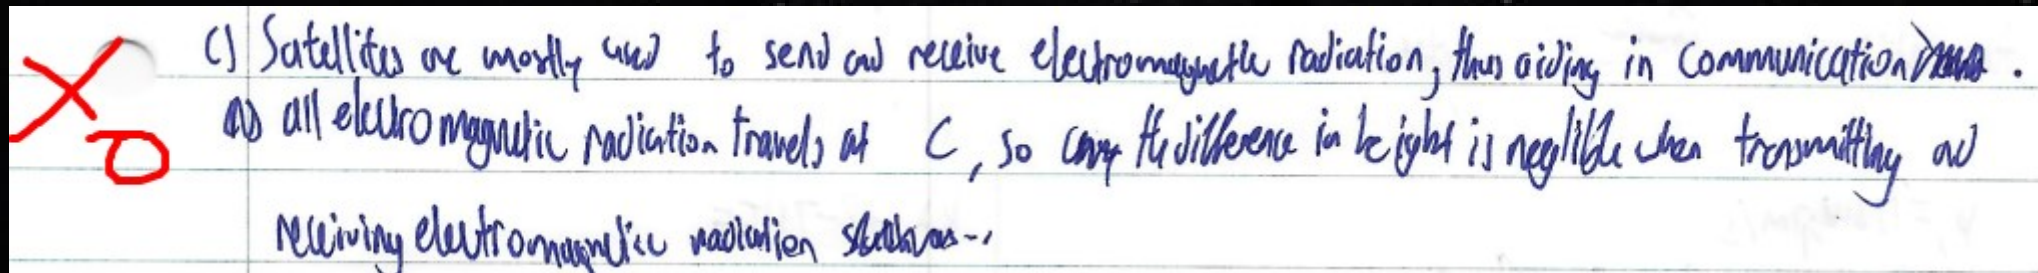 c) Satellites are mostly used to send and receive electromagnetic radiation, thus aiding in communication.
As all electromagnetic radiation travels at C, so the difference in height is neglible when transmitting and
receiving electromagnetic radiation
0